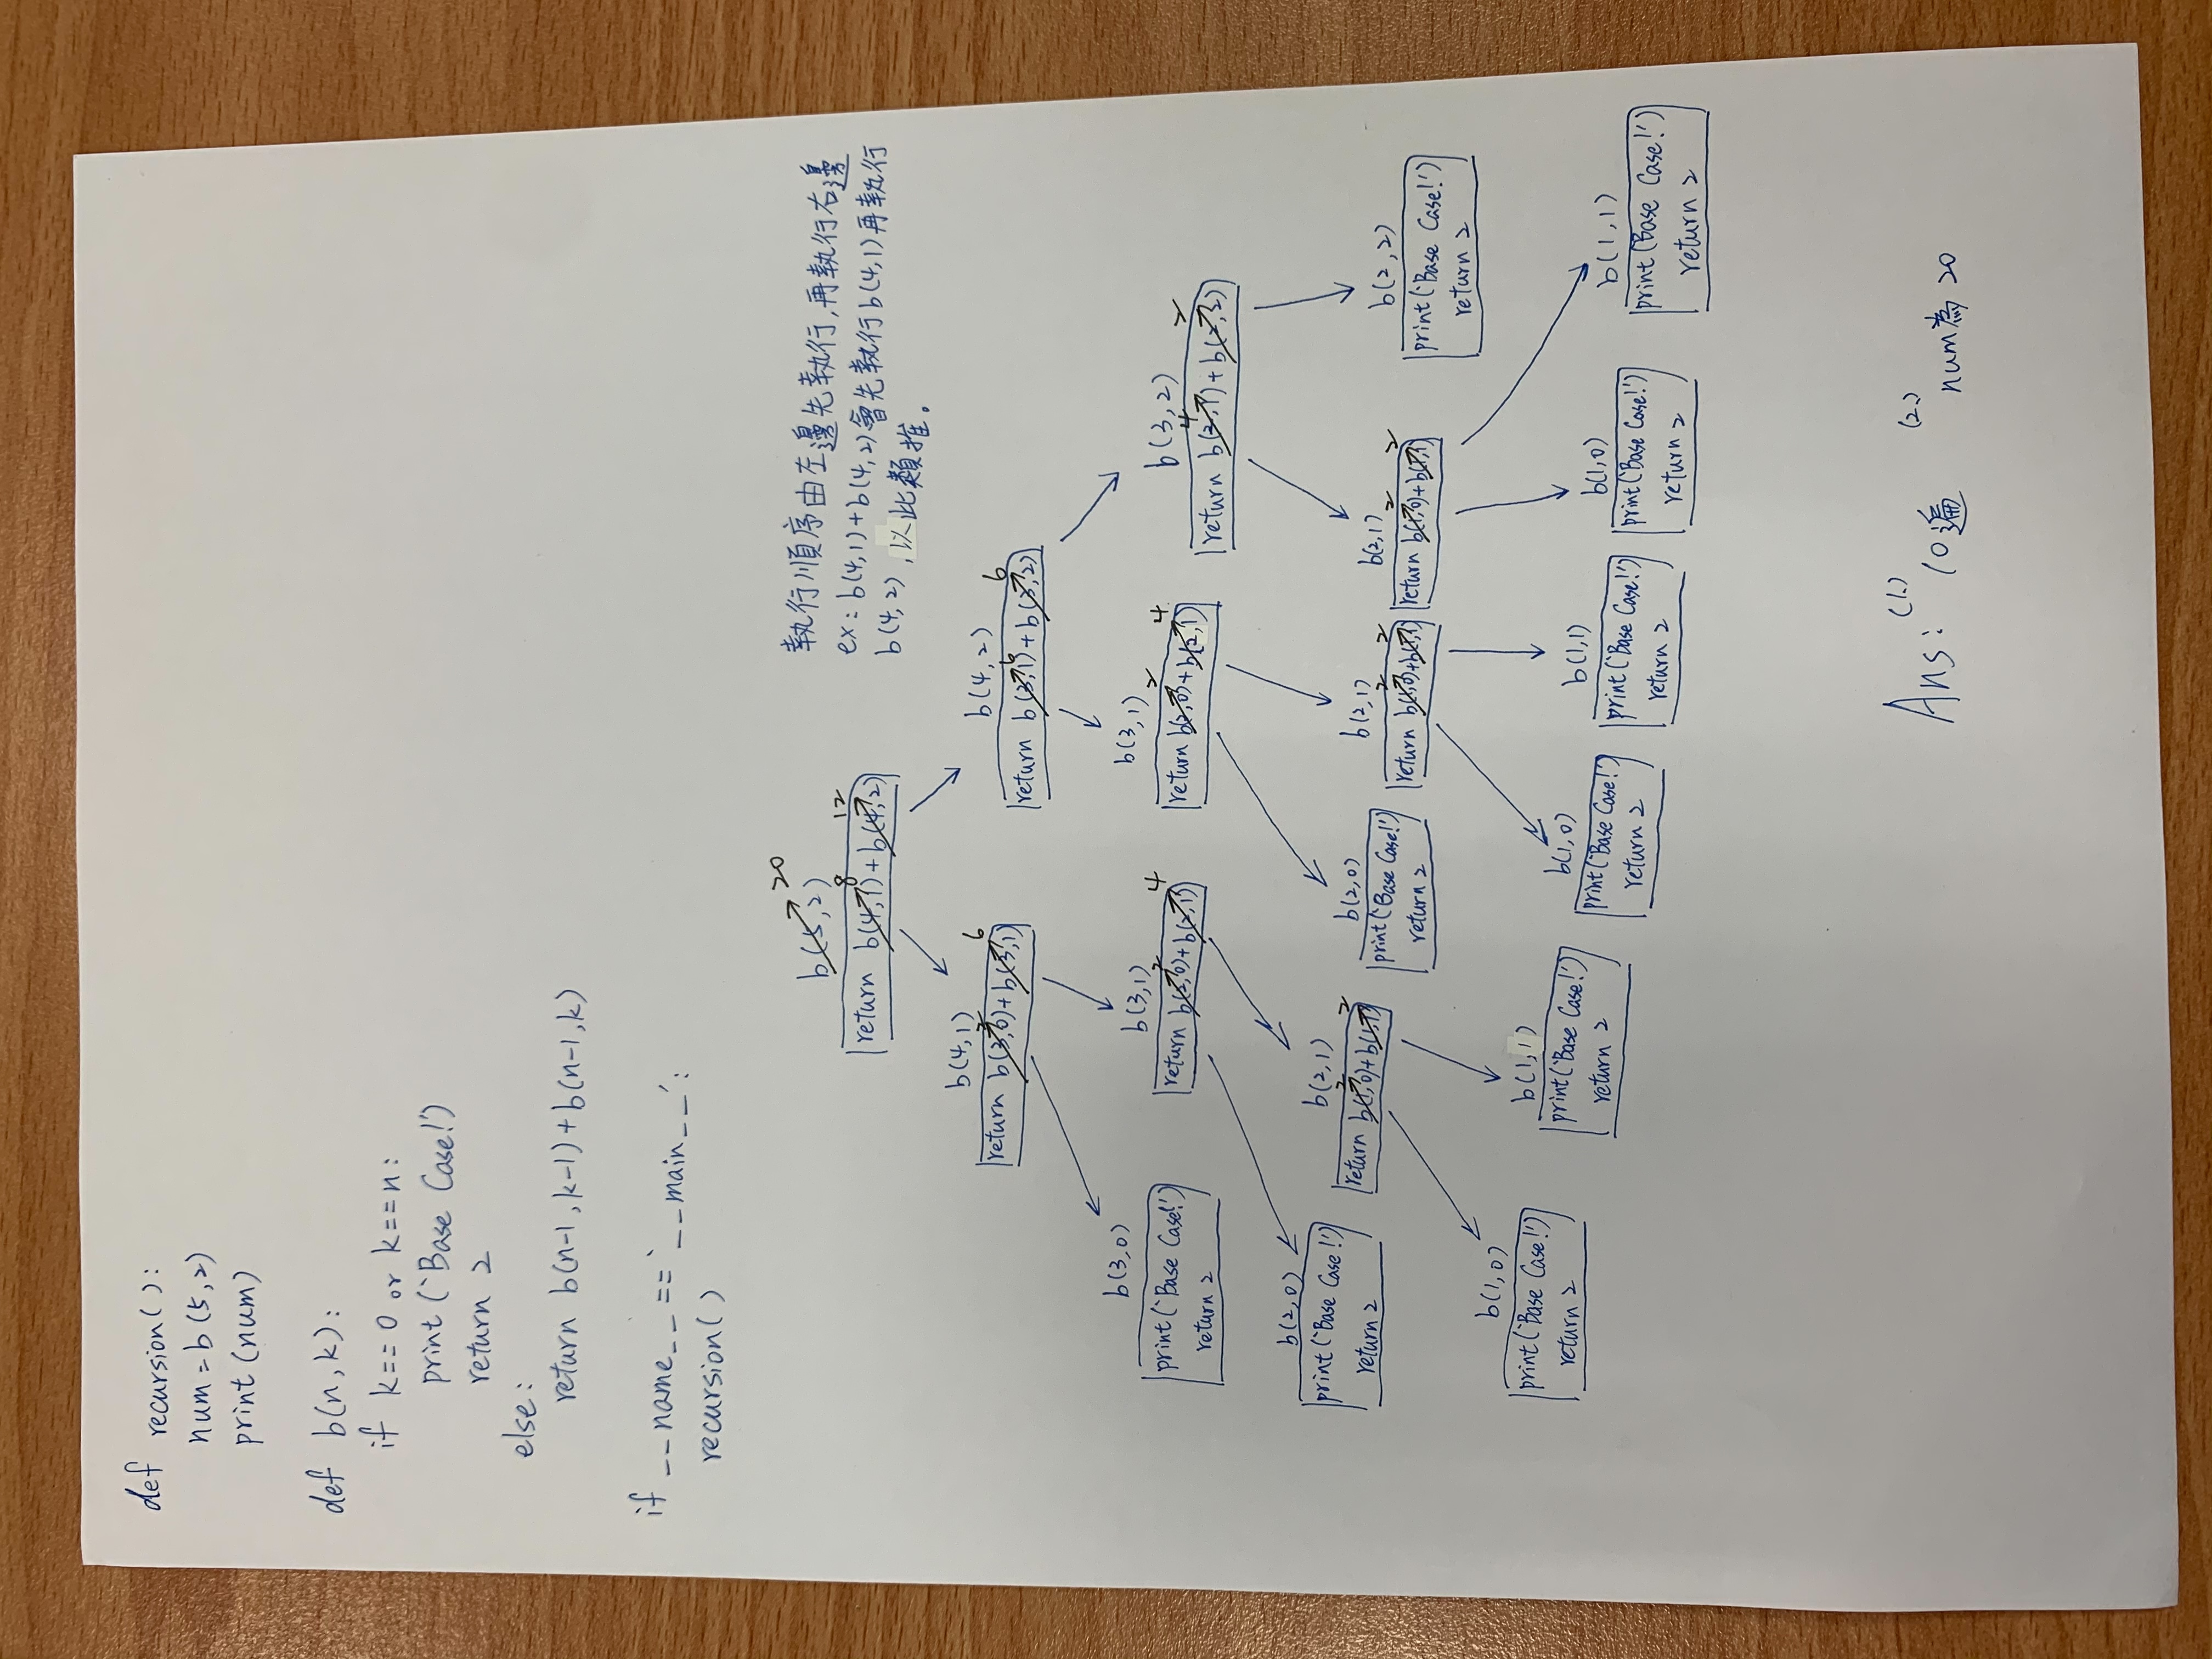 def recursion():
num=b(5,2)
print(num)
def b(n,k):
if k==0 or k==n:
print(‵Base Case!′)
return 2
else:
return b(n-1,k-1)+b(n-1,k)
if __name__ == ‵__main__′:
recursion()
20
b(5,2)
8 12
return b(4,1)+b(4,2)
執行順序由左邊先執行,再執行右邊
ex: b(4,1)+b(4,2)會先執行b(4,1)再執行
b(4,2),以此類推。
b(4,1)
2 6
return b(3,0)+b(3,1)
b(4,2)
6 6
return b(3,1)+b(3,2)
b(3,0)
print(‵Base Case!′)
return 2
b(3,1)
2 4
return b(2,0)+b(2,1)
b(3,1)
2 4
return b(2,0)+b(2,1)
b(3,2)
4 2
return b(2,1)+b(2,2)
b(2,0)
print(‵Base Case!′)
return 2
b(2,1)
2 2
return b(1,0)+b(1,1)
b(2,0)
print(‵Base Case!′)
return 2
b(2,1)
2 2
return b(1,0)+b(1,1)
b(2,1)
2 2
return b(1,0)+b(1,1)
b(2,2)
print(‵Base Case!′)
return 2
b(1,0)
print(‵Base Case!′)
return 2
b(1,1)
print(‵Base Case!′)
return 2
b(1,0)
print(‵Base Case!′)
return 2
b(1,1)
print(‵Base Case!′)
return 2
b(1,0)
print(‵Base Case!′)
return 2
b(1,1)
print(‵Base Case!′)
return 2
Ans: (1.) 10遍 (2.) num為20